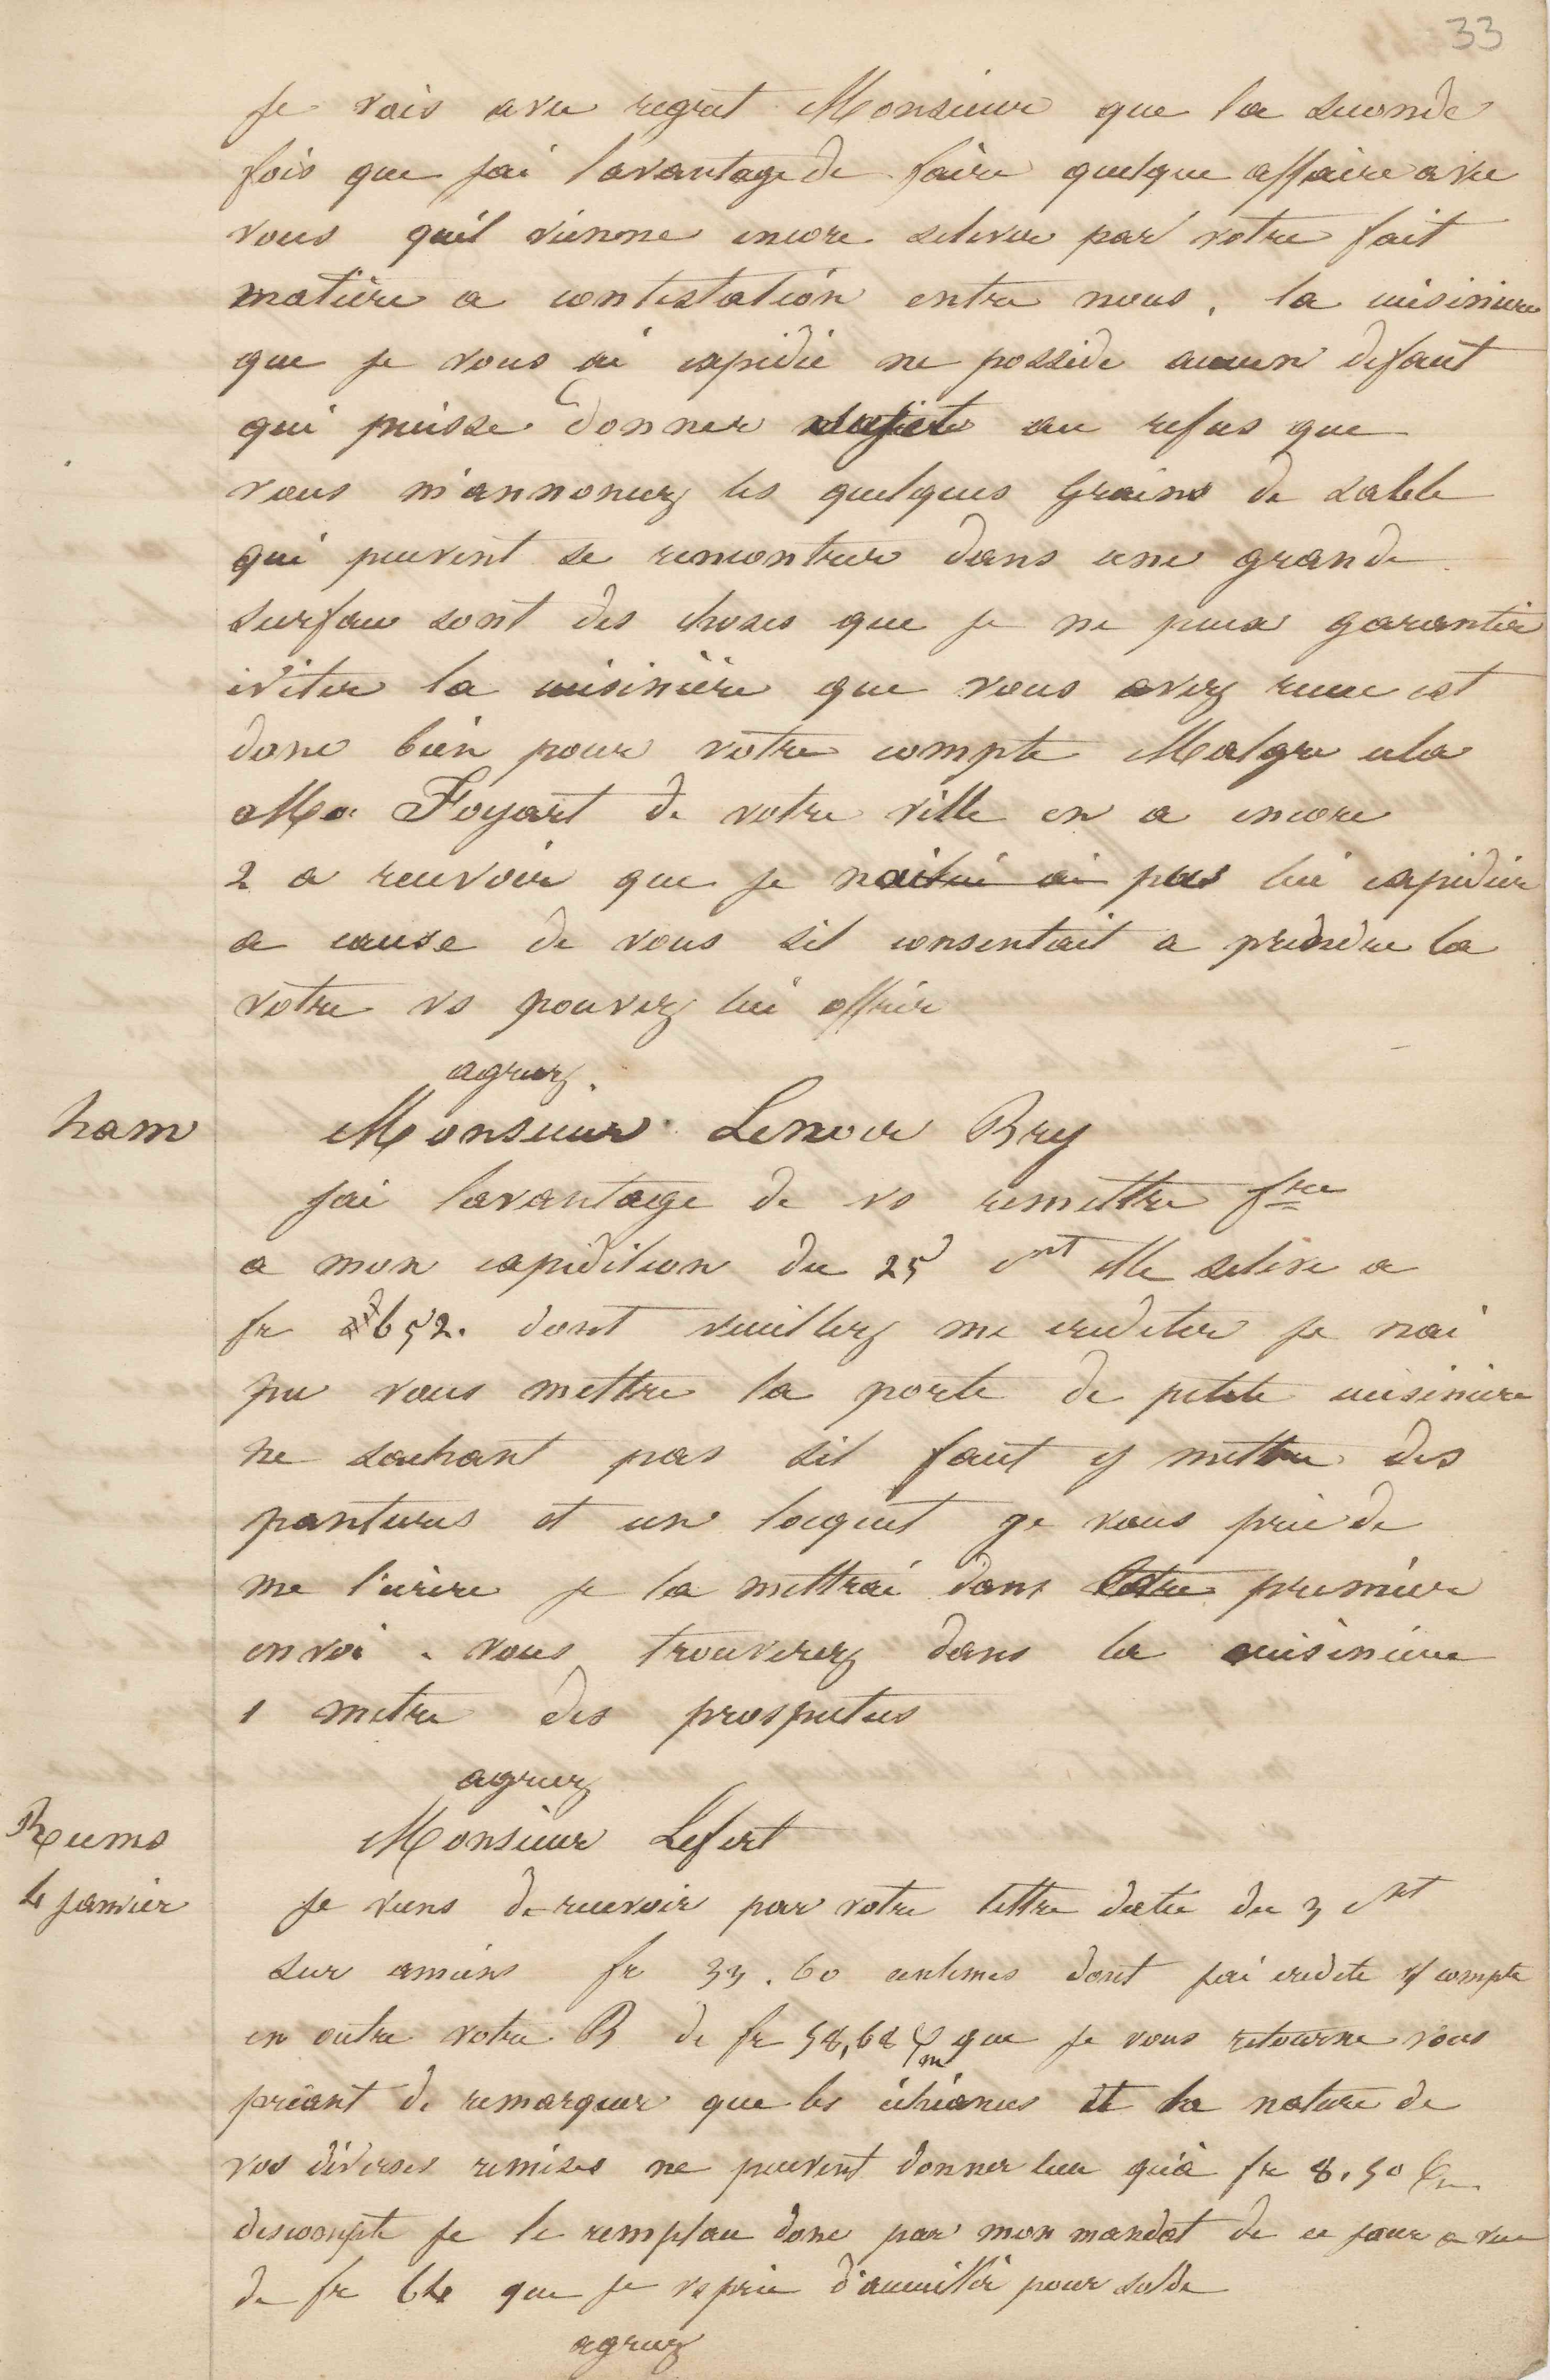 33
Je vois avec regret Monsieur que la seconde
fois que jai lavantage de faire quelque affaire avec
vous quil vienne encore selever par votre fait
matière a contestation entre nous, la cuisiniere
que je vous ai expidié ne posside aucun defaut
qui puisse donner au refus que
vous m'annoncez les quelques Grains de sable
qui peuvent se rencontrer dans une grande
surface sont des choses que je ne peux garantir
éviter la cuisinière que vous avez recue est
donc bien pour votre compte Malgre cela
Mr Foyart de votre ville en a encore
2 a recevoir que je pas lui expidier
a cause de vous sil consentait a prendre la
votre vs pouvez lui offrir
agreez.
ham
Monsieur Lenoir Bry
jai lavantage de vs remettre fre
a mon expidition du 25 ct elle seleve a
fr 652. dont veuillez me crediter je nai
pu vous mettre la porte de petite cuisiniere
ne sachant pas sil faut y mettre des
pantures et un loquet je vous prie de
me l'ecrire je la mettrai dans premier
envoi. vous trouverez dans la cuisiniere
1 metre des prospectus
agreez
Reims
Monsieur Lefert
4 janvier
Je viens de recevoir par votre lettre datée du 3 ct
sur amiens fr 33.60 centimes dont jai credité compte
en outre votre B de fr 58,68 que je vous retourne vous
priant de remarquer que les échéances et la nature de
vos diverses remises ne peuvent donner lieu qu'à fr 8.50
descompte je le remplace donc par mon mandat de ce jour a vue
de fr 64 que je vs prie d'accueillir pour solde
agreez